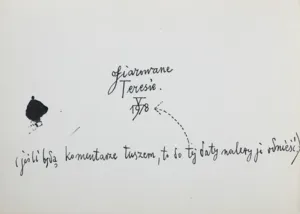 ofiarowane
Teresie.
V
1978
(jeśli będą komentarze tuszem, to do tej daty należy je odnieść!)